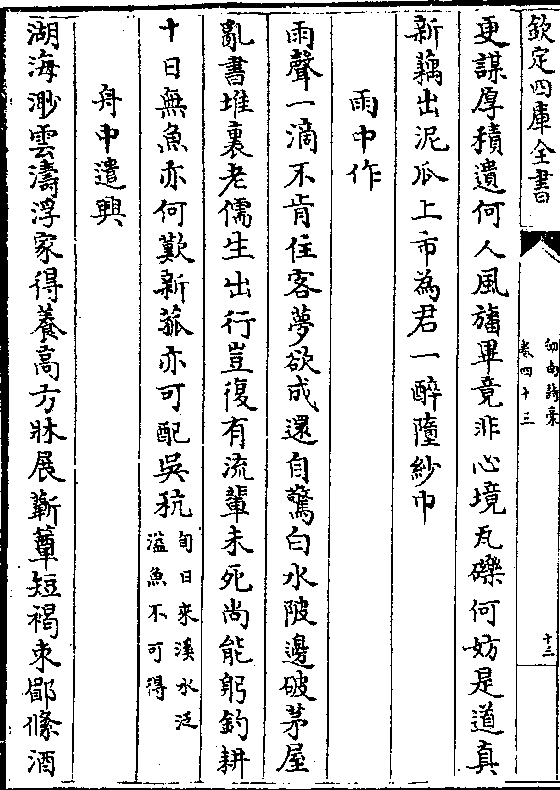 欽定四庫全書
劒南詩稾
卷四十三
十三
更謀厚積遺何人風旛畢竟非心境瓦礫何妨是道真
新藕出泥瓜上市為君一醉墮紗巾
雨中作
雨聲一滴不肯住客夢欲成還自驚白水陂邊破茅屋
亂書堆裏老儒生出行豈復有流輩未死尚能躬釣耕
十日無魚亦何歎新菰亦可配吳秔旬日來溪水泛
溢魚不可得
舟中遣興
湖海渺雲濤浮家得養高方牀展蘄簟短褐束鄖絛酒